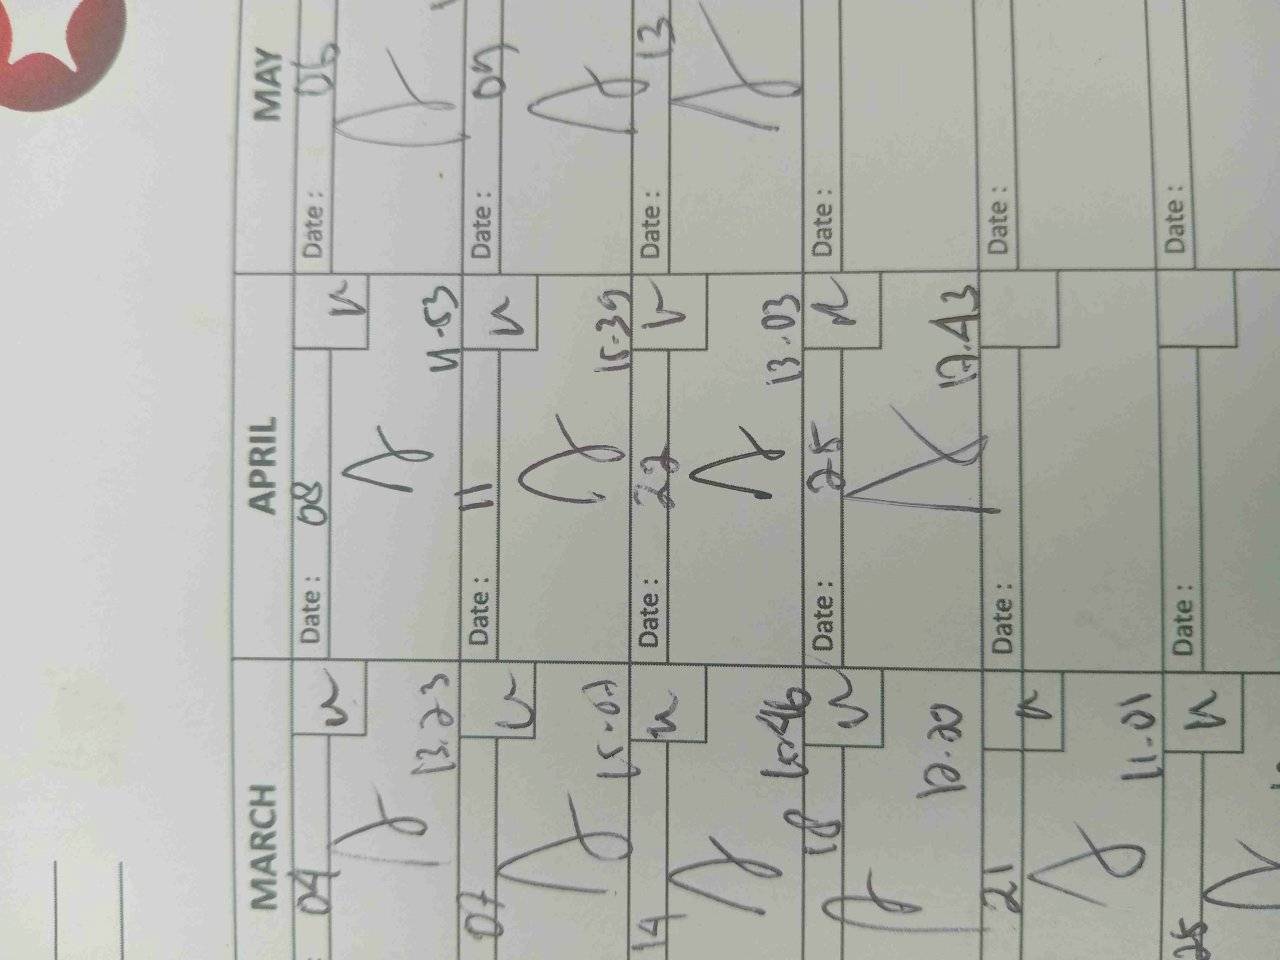 MARCH APRIL MAY
04 Date : 08 Date : 06
13.23 11.53
07 Date : 11 Date : 09
15.07 15.39
14 Date : 22 Date : 13
15.46 13.03
18 Date : 25 Date :
12.20 17.43
21 Date : Date :
11.01
25 Date : Date :